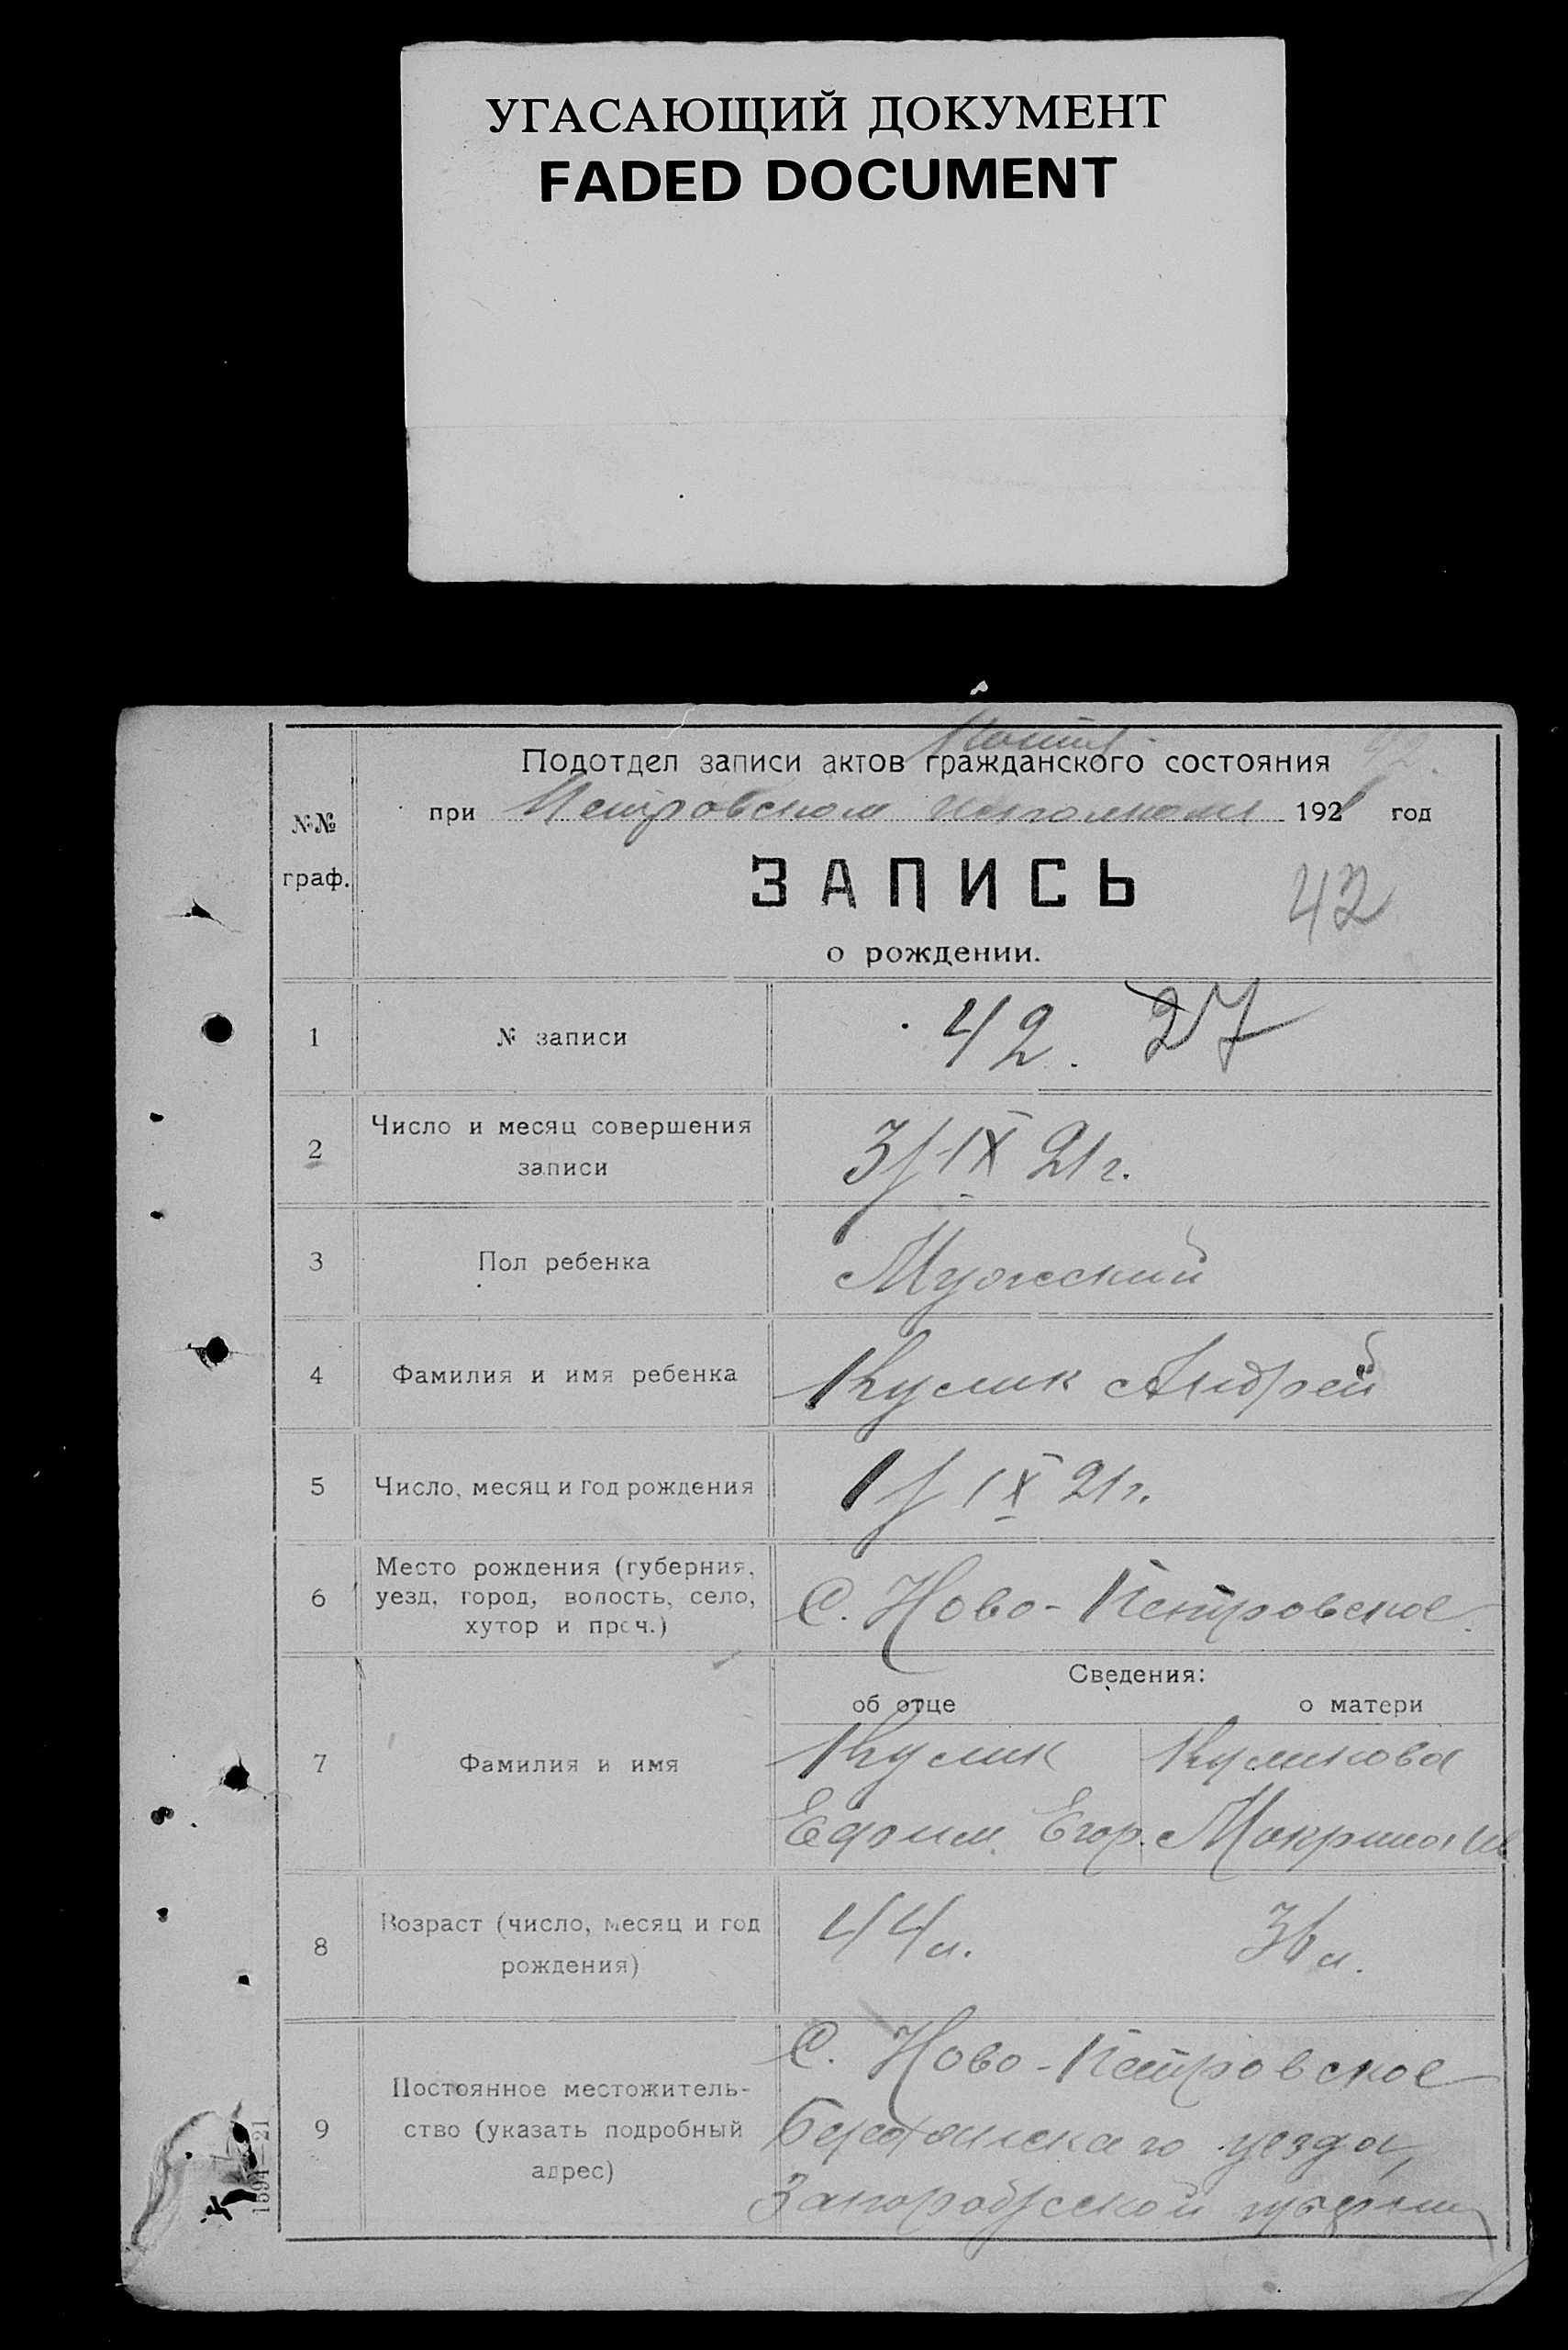 УГАСАЮЩИЙ ДОКУМЕНТ
FADED DOCUMENT
Подотдел записи актов гражданского состояния
при Петровском исполкоме 1921 год
№№
граф.
ЗАПИСЬ
42
о рождении.
1 № записи 42. 27
2 Число и месяц совершения
записи
3/IX 21 г.
3 Пол ребенка Мужеский
4 Фамилия и имя ребенка Кулик Андрей
5 Число, месяц и год рождения 1/IX 21 г.
6 Место рождения (губерния,
уезд, город, волость, село,
хутор и проч.)
С. Ново-Петровское
Сведения:
об отце о матери
7 Фамилия и имя
Кулик Куликова
Ефим Егор. Макрина
8 Возраст (число, месяц и год
рождения)
44 л. 36 л.
9 Постоянное местожитель-
ство (указать подробный
адрес)
С. Ново-Петровское
Бердянскаго уезда,
Запорожской губернии
1594—21